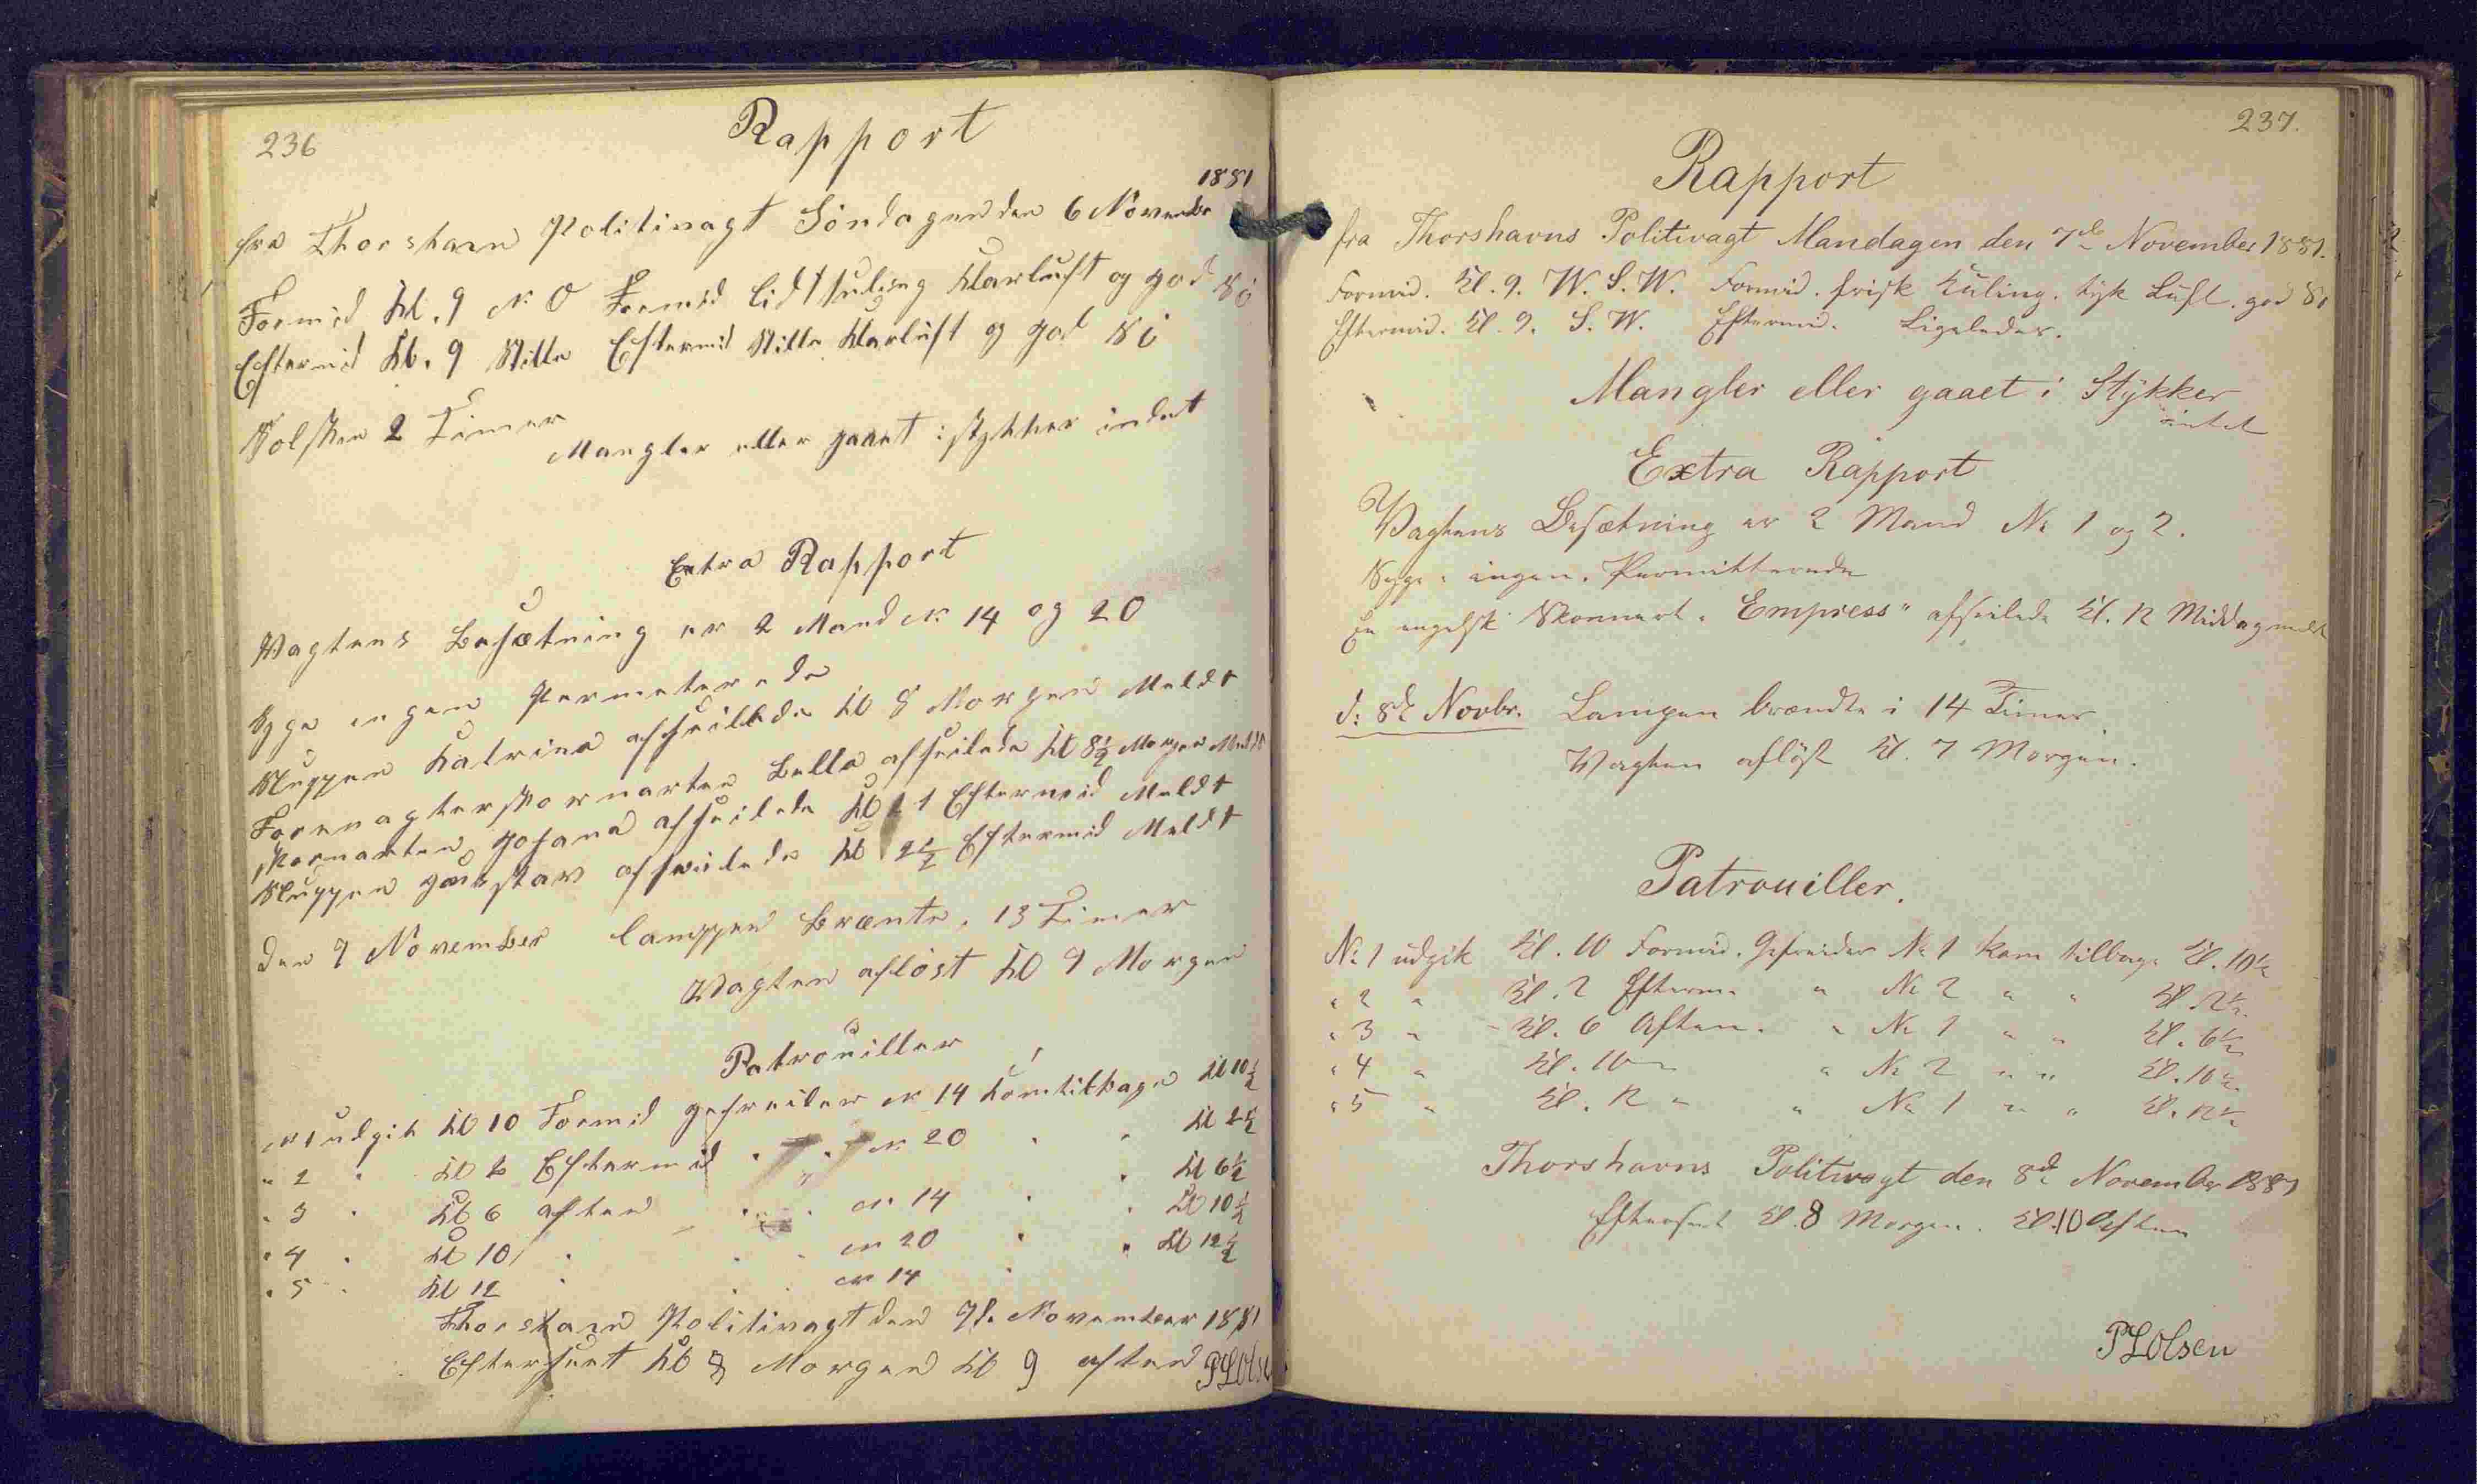 236
Rapport
1881
fra Thorshavn Politivagt Søndagen den 6 November
Formid Kl. 9 N. O Formid lidt kuling Klarluft og god Si
Eftermid Kl. 9 Stille Eftermid Stille Klarluft og god Si
Solskin 2 Timer
Mangler eller gaaet i stykker indet
Extra Rapport
Vagtens Besætning er 2 Mand N: 14 og 20
Syge ingen Permeterede
Sluppen Katrina afseillede Kl 8 Morgen Meldt
Forevagterskonnarten Bella afseilede Kl 8½ Morgen Meldt
skonnarten Johana afseilede Kl 1 Eftermid Meldt
Sluppen Gustav afseilede Kl 2½ Eftermid Meldt
den 7 November lamppen Brænte, 13 Timer
Vagten afløst Kl 7 Morgen
Patrouiller
N: 1 udgik Kl 10 Formid gefreider N: 14 kom tilbage Kl 10½
" 2 " Kl 2 Eftermid " " N: 20 " " Kl 2½
" 3 " Kl 6 aften " " N: 14 " " Kl 6½
" 4 " Kl 10 " " " N: 20 " " Kl 10½
" 5 " Kl 12 " " " N: 14 " " Kl 12½
Thorshavn Politivagt den 7de November 1881
Efterseet Kl 8 Morgen Kl 9 aften PLOlse
237.
Rapport
fra Thorshavns Politivagt Mandagen den 7de November 1881.
Formid. Kl. 9. W. S. W. Formid. frisk Kuling. tyk Luft. god Si
Eftermid. Kl. 9. S. W. Eftermid. Ligeledes.
Mangler eller gaaet i Stykker
intet
Extra Rapport
Vagtens Besætning er 2 Mand No 1 og 2.
Syge: ingen. Permitterede
En engelsk Skonnert "Empress" afseilede Kl. 12 Middag meldt
d: 8de Novbr. Lampen brændte i 14 Timer
Vagten afløst Kl. 7 Morgen.
Patrouiller.
No 1 udgik Kl. 10 Formid. Gefreider No 1 kom tilbage Kl. 10½
" 2 " Kl. 2 Efterm. " No 2 " " Kl. 2½
" 3 " Kl. 6 Aften. " No 1 " " Kl. 6½
" 4 " Kl. 10 " " No 2 " " Kl. 10½
" 5 " Kl. 12 " " No 1 " " Kl. 12½
Thorshavns Politivagt den 8de November 1881
Efterseet Kl. 8 Morgen. Kl. 10 Aften
PLOlsen